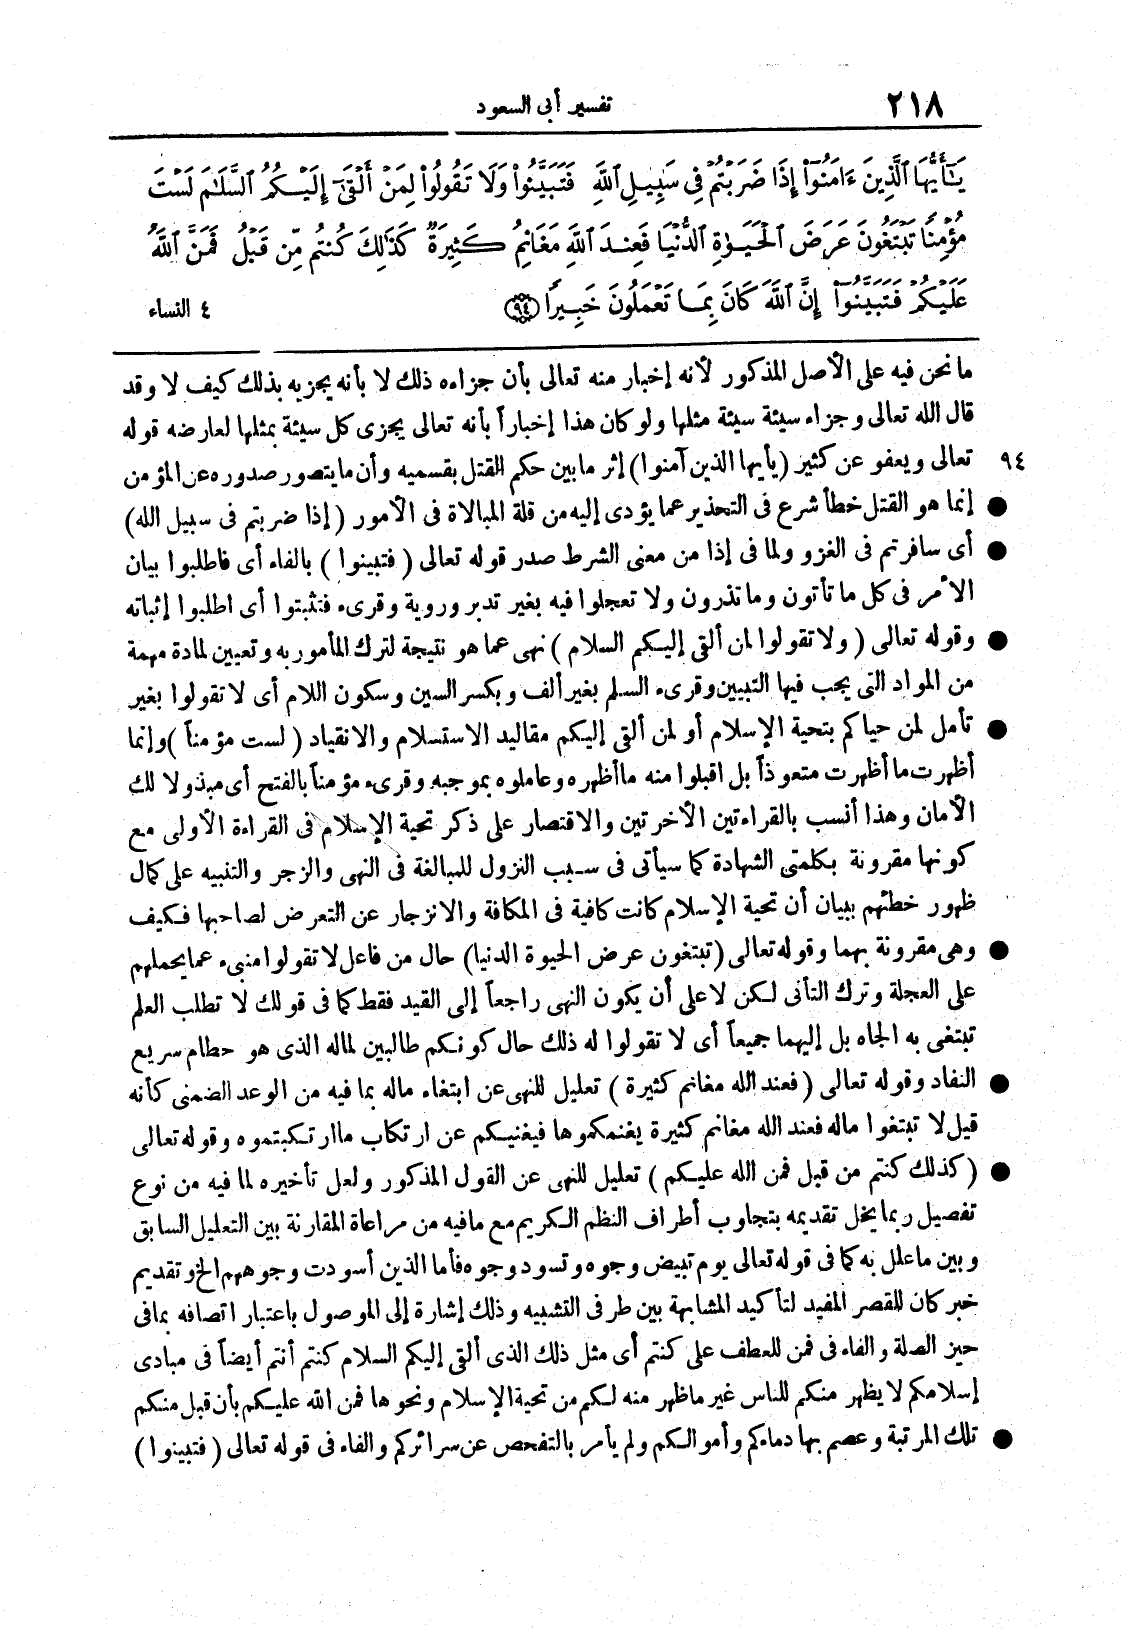 ٢١٨ تفسير أبى السعود
يَٰٓأَيُّهَا ٱلَّذِينَ ءَامَنُوٓا۟ إِذَا ضَرَبْتُمْ فِى سَبِيلِ ٱللَّهِ فَتَبَيَّنُوا۟ وَلَا تَقُولُوا۟ لِمَنْ أَلْقَىٰٓ إِلَيْكُمُ ٱلسَّلَٰمَ لَسْتَ
مُؤْمِنًا تَبْتَغُونَ عَرَضَ ٱلْحَيَوٰةِ ٱلدُّنْيَا فَعِندَ ٱللَّهِ مَغَانِمُ كَثِيرَةٌ كَذَٰلِكَ كُنتُم مِّن قَبْلُ فَمَنَّ ٱللَّهُ
عَلَيْكُمْ فَتَبَيَّنُوٓا۟ إِنَّ ٱللَّهَ كَانَ بِمَا تَعْمَلُونَ خَبِيرًا ﴿٩٤﴾ ٤ النساء
ما نحن فيه على الأصل المذكور لأنه إخبار منه تعالى بأن جزاءه ذلك لا بأنه يجزيه بذلك كيف لا وقد
قال الله تعالى وجزاء سيئة سيئة مثلها ولو كان هذا إخباراً بأنه تعالى يجزى كل سيئة بمثلها لعارضه قوله
٩٤ تعالى ويعفو عن كثير (يأيها الذين آمنوا) إثر ما بين حكم القتل بقسميه وأن ما يتصور صدوره عن المؤمن
● إنما هو القتل خطأ شرع فى التحذير عما يؤدى إليه من قلة المبالاة فى الأمور (إذا ضربتم فى سبيل الله)
● أى سافرتم فى الغزو ولما فى إذا من معنى الشرط صدر قوله تعالى (فتبينوا) بالفاء أى فاطلبوا بيان
الأمر فى كل ما تأتون وما تذرون ولا تعجلوا فيه بغير تدبر وروية وقرىء فتثبتوا أى اطلبوا إثباته
● وقوله تعالى (ولا تقولوا لمن ألقى إليكم السلام) نهى عما هو نتيجة لترك المأمور به وتعيين لمادة مهمة
من المواد التى يجب فيها التبيين وقرىء السلم بغير ألف وبكسر السين وسكون اللام أى لا تقولوا بغير
● تأمل لمن حياكم بتحية الإسلام أو لمن ألقى إليكم مقاليد الاستسلام والانقياد (لست مؤمناً) وإنما
أظهرت ما أظهرت متعوذاً بل اقبلوا منه ما أظهره وعاملوه بموجبه وقرىء مؤمناً بالفتح أى مبذولا لك
الأمان وهذا أنسب بالقراءتين الأخرتين والاقتصار على ذكر تحية الإسلام فى القراءة الأولى مع
كونها مقرونة بكلمتى الشهادة كما سيأتى فى سبب النزول للمبالغة فى النهى والزجر والتنبيه على كمال
ظهور خطئهم ببيان أن تحية الإسلام كانت كافية فى المكافة والانزجار عن التعرض لصاحبها فكيف
● وهى مقرونة بهما وقوله تعالى (تبتغون عرض الحيوة الدنيا) حال من فاعل لا تقولوا منبىء عما يحملهم
على العجلة وترك التأنى لكن لا على أن يكون النهى راجعاً إلى القيد فقط كما فى قولك لا تطلب العلم
تبتغى به الجاه بل إليهما جميعاً أى لا تقولوا له ذلك حال كونكم طالبين لماله الذى هو حطام سريع
● النفاد وقوله تعالى (فعند الله مغانم كثيرة) تعليل للنهى عن ابتغاء ماله بما فيه من الوعد الضمنى كأنه
قيل لا تبتغوا ماله فعند الله مغانم كثيرة يغنمكموها فيغنيكم عن ارتكاب ما ارتكبتموه وقوله تعالى
● (كذلك كنتم من قبل فمن الله عليكم) تعليل للنهى عن القول المذكور ولعل تأخيره لما فيه من نوع
تفصيل ربما يخل تقديمه بتجاوب أطراف النظم الكريم مع ما فيه من مراعاة المقارنة بين التعليل السابق
وبين ما علل به كما فى قوله تعالى يوم تبيض وجوه وتسود وجوه فأما الذين أسودت وجوههم الخ وتقديم
خبر كان للقصر المفيد لتأكيد المشابهة بين طرفى التشبيه وذلك إشارة إلى الموصول باعتبار اتصافه بما فى
حيز الصلة والفاء فى فمن للعطف على كنتم أى مثل ذلك الذى ألقى إليكم السلام كنتم أنتم أيضاً فى مبادى
إسلامكم لا يظهر منكم للناس غير ما ظهر منه لكم من تحية الإسلام ونحوها فمن الله عليكم بأن قبل منكم
● تلك المرتبة وعصم بها دماءكم وأموالكم ولم يأمر بالتفحص عن سرائركم والفاء فى قوله تعالى (فتبينوا)